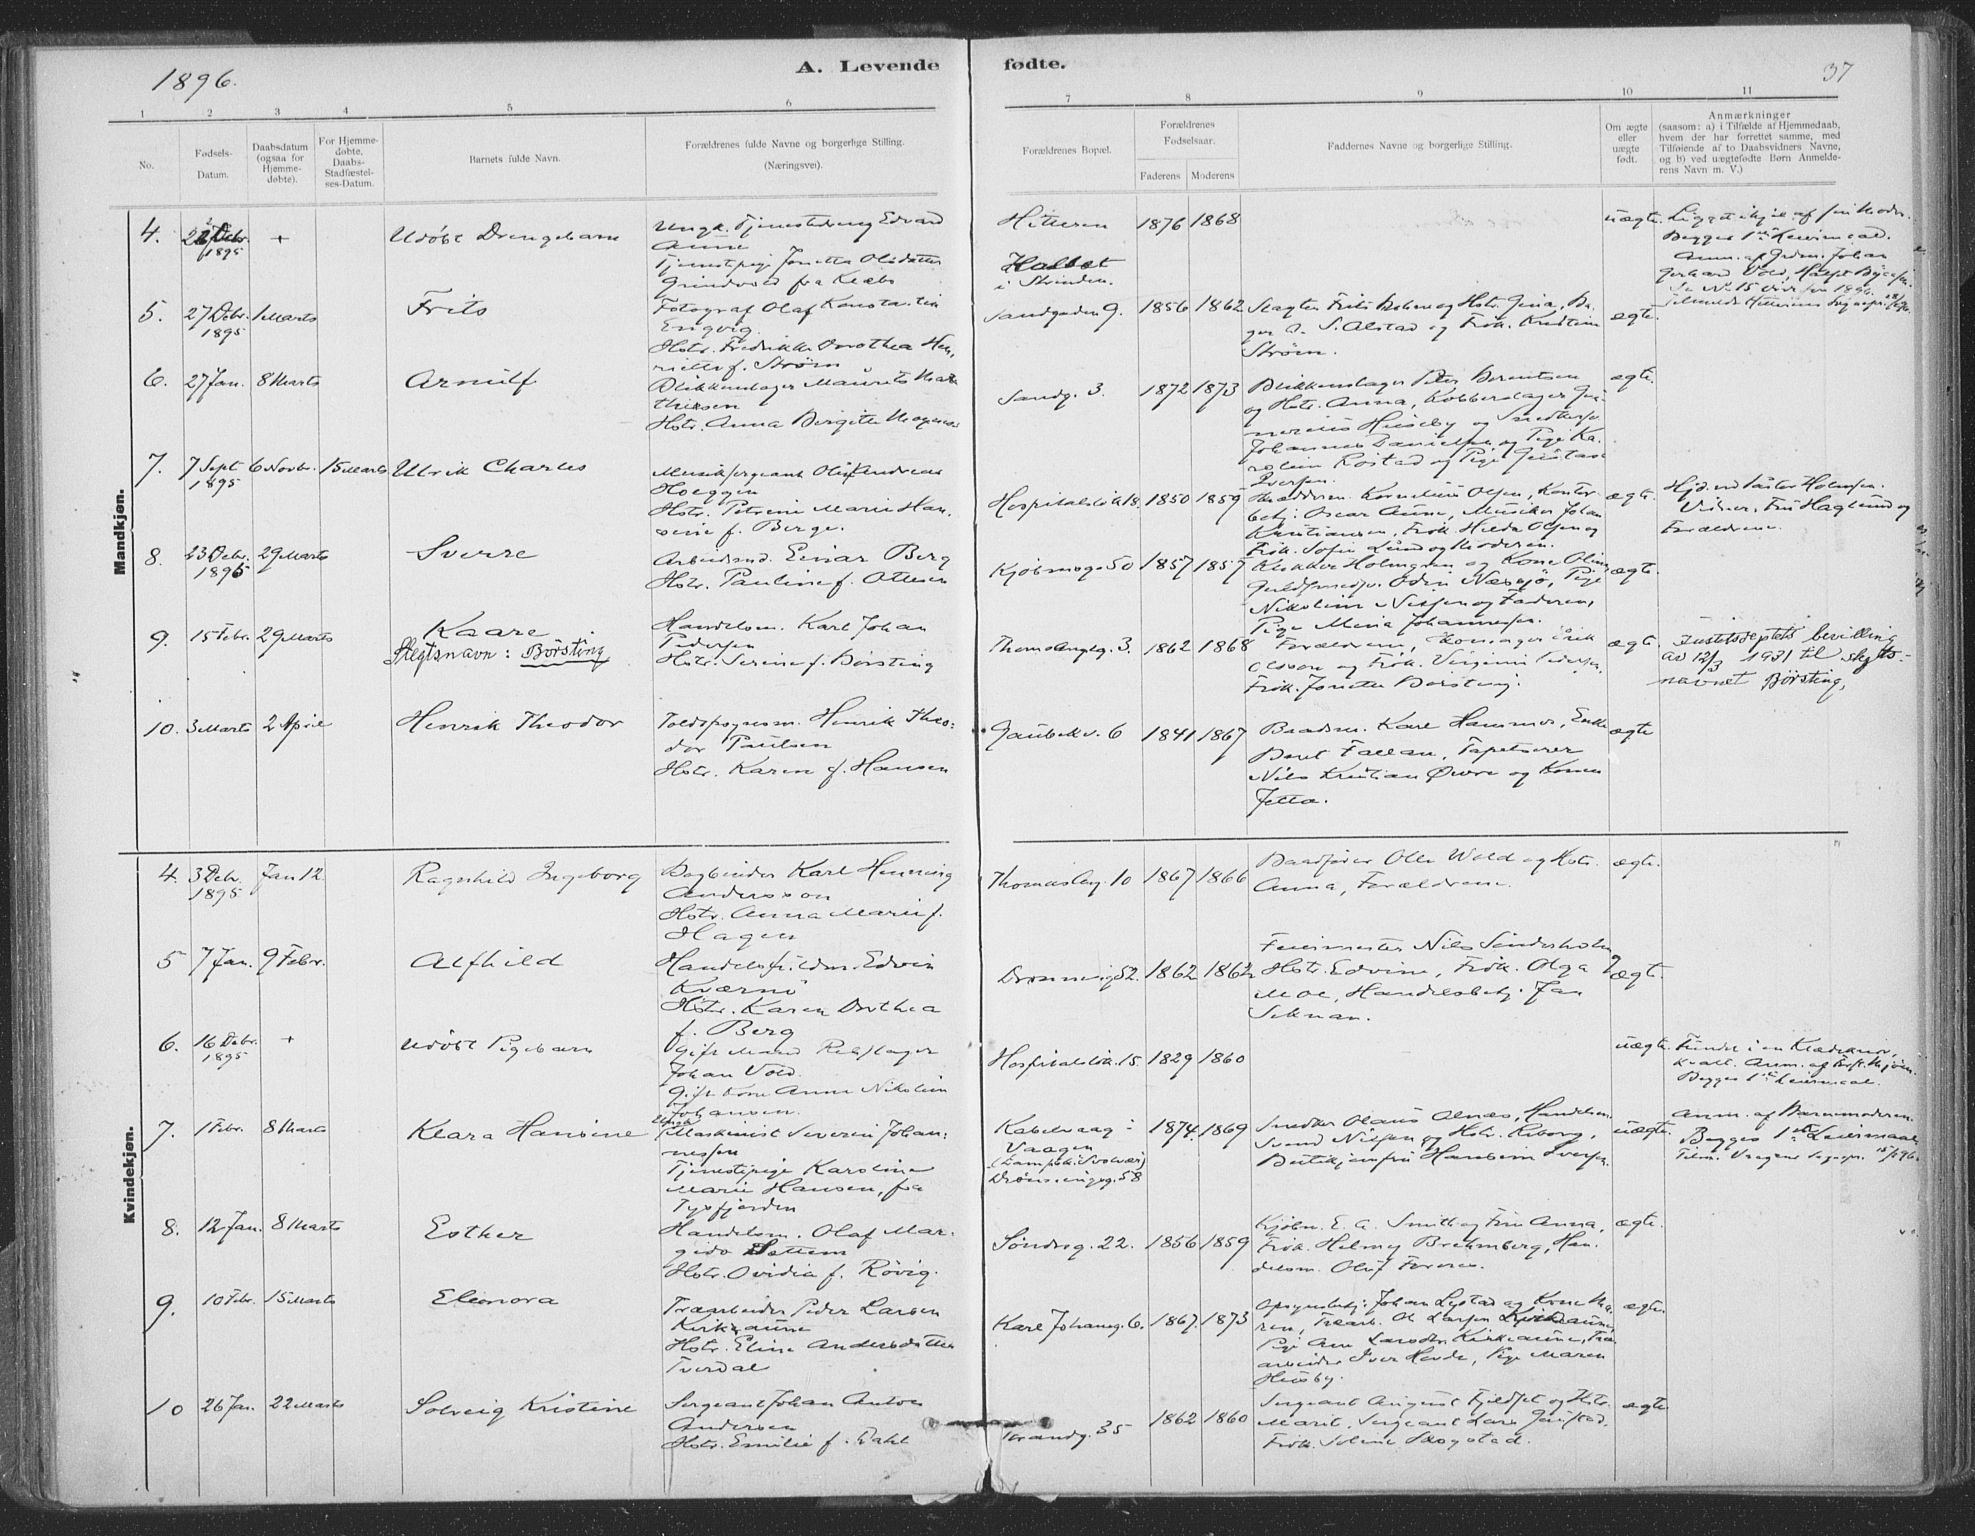 1896.
A. Levende fødte.
37
1 2 3 4 5 6 7 8 9 10 11
No.
Fødsels-
Datum.
Daabsdatum
(ogsaa for
Hjemme-
døbte).
For Hjemme-
døbte,
Daabs-
Stadfæstel-
ses-Datum.
Barnets fulde Navn.
Forældrenes fulde Navne og borgerlige Stilling.
(Næringsvei).
Forældrenes Bopæl.
Forældrenes
Fødselsaar.
Faderens Moderens
Faddernes Navne og borgerlige Stilling.
Om ægte
eller
uægte
født.
Anmærkninger
(saasom: a) i Tilfælde af Hjemmedaab,
hvem der har forrettet samme, med
Tilføiende af to Daabsvidners Navne,
og b) ved uægtefødte Børn Anmelde-
rens Navn m. V.)
Mandkjøn.
4. Debr. 1895 + Udøbt Drengebarn
Ungk. Tjenestedreng Edvard
Aune
Tjenestepige Jonetta Olsdatter
Grindvold fra Klæbo
Hitteren
i Strinden.
1876 1868
uægte.
Begges 1ste Leiermaal.
5. 27 Debr. 1895 1 Marts Frits
Fotograf Olaf Konstantin
Engvig.
Hstr. Fredrikke Dorothea Hen-
riette f. Strøm
Sandgaden 9. 1856 1862
S. Alstad og Frøk. Kristine
Strøm.
ægte.
6. 27 Jan. 8 Marts Arnulf
Blikkenslager Maurits Mat-
thisen
Hstr. Anna Birgitte
Sandg. 3. 1872 1873
Blikkenslager Peter Berentsen
og Hstr. Anna, Kobberslager
Huseby og
Johannes Danielsen og Pige Ka-
roline Rostad og Pige Gustava
Iversen.
ægte.
7. 7 Sept 1895 6 Novbr. 15 Marts Ulrik Charles
Musiksergeant Oluf Andreas
Hoeggen
Hstr. Petrine Marie Han-
sine f. Berge.
Hospitalslök. 18. 1850 1859
Kornelius Olsen, Kontor-
betj: Oscar Aune, Musiker Johan
Kristiansen, Frøk. Hilda Olsen og
Frøk. Sofie Lund og Moderen.
ægte.
Forældrene.
8. 23 Debr. 1895 29 Marts Sverre
Arbeidsmd. Einar Berg
Hstr. Pauline f. Ottesen
Kjøbmag. 50 1857 1857
Klokker Holmgren og Kone Oline,
Guldsmedsv. Odin Næssjø, Pige
Nikoline Nissen og Faderen,
Pige Maria Johannessen.
ægte.
9. 15 Febr. 29 Marts Kaare
Slegtsnavn: Børsting
Handelsm. Karl Johan
Pedersen
Hstr. Serine f. Børsting
Thomas Angelsg. 3. 1862 1868
Forældrene, Erik
Olsson og Frøk. Virginie Pedersen,
Frøk. Jonette Børsting.
ægte.
Justitsdeptets bevilling
av 12/3 1931 til slegts-
navnet Børsting,
10. 3 Marts 2 April Henrik Theodor
Toldopsynsm. Henrik Theo-
dor Paulsen
Hstr. Karen f. Hansen
Gaubekv. 6 1841 1867
Baadsm. Karl Hammer, Enke
Beret Fallan, Tapetserer
Nils Kristian Øwre og Kone
Jetta.
ægte
Kvindekjøn.
4. 3 Debr. 1895 Jan 12. Ragnhild Ingeborg
Bogbinder Karl Henning
Andersson
Hstr. Anna Marie f.
Hagen
Thomas Ang. 10 1867 1866
Baadfører Olle Wold og Hstr.
Anna, Forældrene.
ægte.
5 7 Jan. 9 Febr. Alfhild
Edvin
Kværnø
Hstr. Karen Dorthea
f. Berg
52. 1862 1862
Feiermester Nils Sønderholm,
Hstr. Edvine, Frøk. Olga
Moe, Handelsbetj. Jan
Seknan.
ægte.
6. 16 Debr. 1895 + Udøbt Pigebarn
Gift Mand Rebslager
Johan Vold.
Gift Kone Anna Nikoline
Johansen.
Hospitalslök. 15. 1829 1860
uægte.
Begges 1ste Leiermaal.
7. 1 Febr. 8 Marts Klara Hansine
Maskinist Severin Johan-
nessen
Tjenestepige Karoline
Marie Hansen, fra
Tysfjorden
Kabelvaag i
Vaagen
58
1874. 1869
Snedker Olaus Olnæs, Handelsm.
Svend Nilsen og Hstr. Roborg,
Butikjomfru Iversen.
uægte.
Anm. af Barnemoderen.
Begges 1ste Leiermaal.
8. 12 Jan. 8 Marts Esther
Handelsm. Olaf Mar-
gido Sættem
Hstr. Ovidia f. Røvig.
Søndreg. 22. 1856 1859
Kjøbm. E. A. Smith og Fru Anna,
Frøk. Helmey Brehmberg, Han-
delsm. Oluf
ægte.
9. 10 Febr. 15 Marts Eleonora
Træarbeider Peder Larsen
Kirkaune
Hstr. Eline Andersdatter
Tverdal
Karl Johansg. 6. 1867. 1873
Opsynsbetj: Johan Lystad og Kone Ma-
ren, Træarb. Ole Larsen Kirkaune,
Pige Ane Larsdtr. Kirkeaune, Træ-
arbeider Iver Hovde, Pige Maren
Huseby.
ægte.
10 26 Jan. 22 Marts Solveig Kristine
Sergeant Johan Anton
Andersen
Hstr. Emilie f. Dahl
Strandg. 35 1862 1860
Sergeant August Fjeldset og Hstr.
Marit, Sergeant Lars
Frøk. Skogstad.
ægte